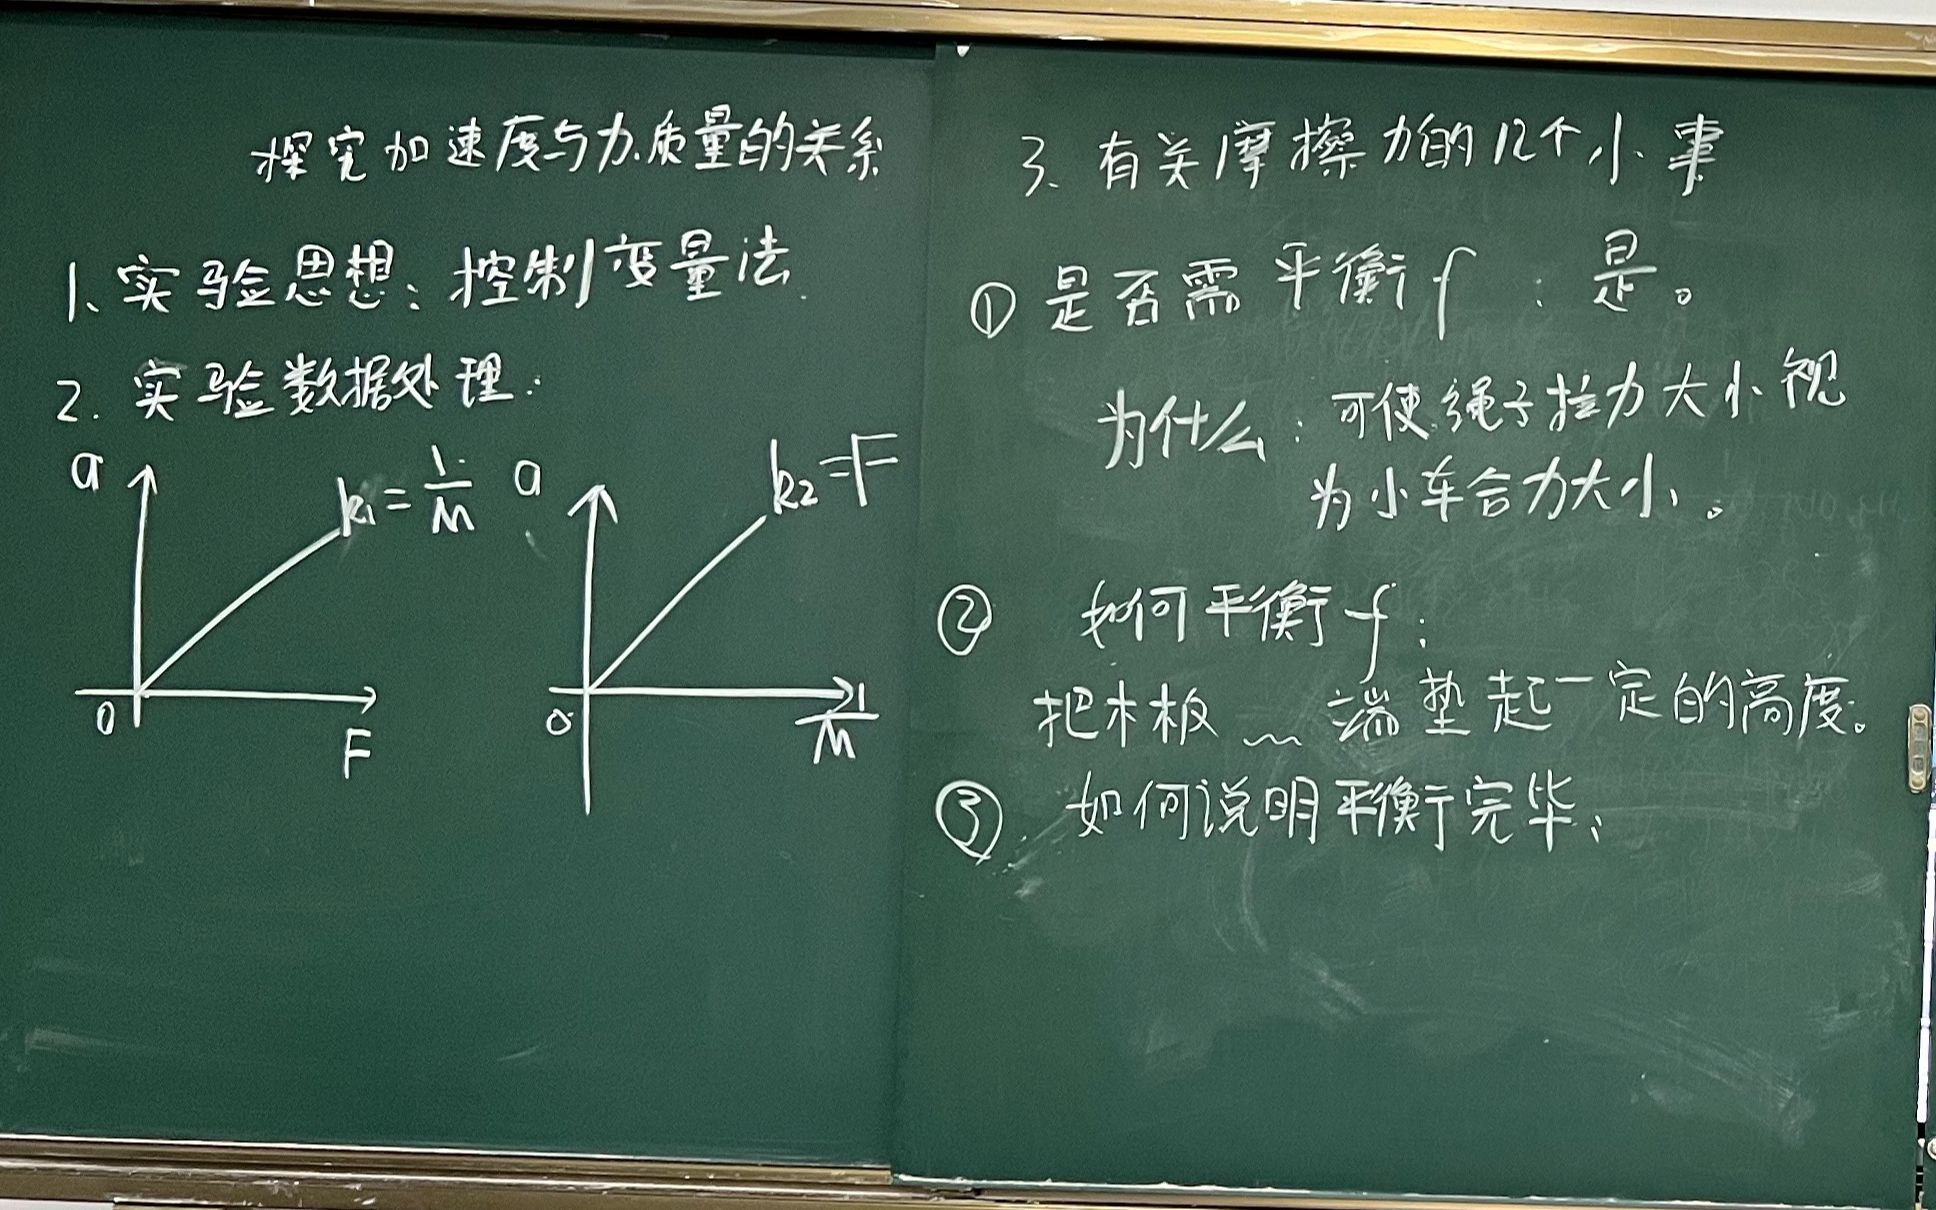 探究加速度与力、质量的关系
1、实验思想：控制变量法.
2. 实验数据处理：
a
k₁=1/M
0
F
a
k₂=F
0
1/M
3、有关摩擦力的几个小事
① 是否需平衡f：是。
为什么：可使绳子拉力大小视
为小车合力大小。
② 如何平衡f：
把木板一端垫起一定的高度。
③ 如何说明平衡完毕：